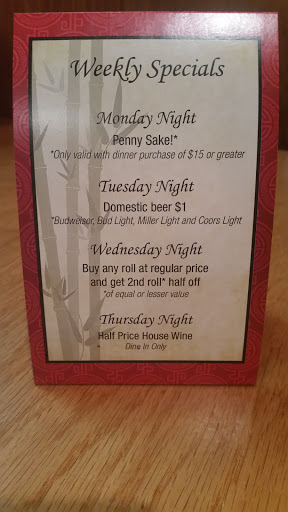 Weekly Specials
Monday Night
Penny Sake!*
*Only valid with dinner purchase of $15 or greater
Tuesday Night
Domestic beer $1
*Budweiser, Bud Light, Miller Light and Coors Light
Wednesday Night
Buy any roll at regular price
and get 2nd roll* half off
*of equal or lesser value
Thursday Night
Half Price House Wine
Dine In Only